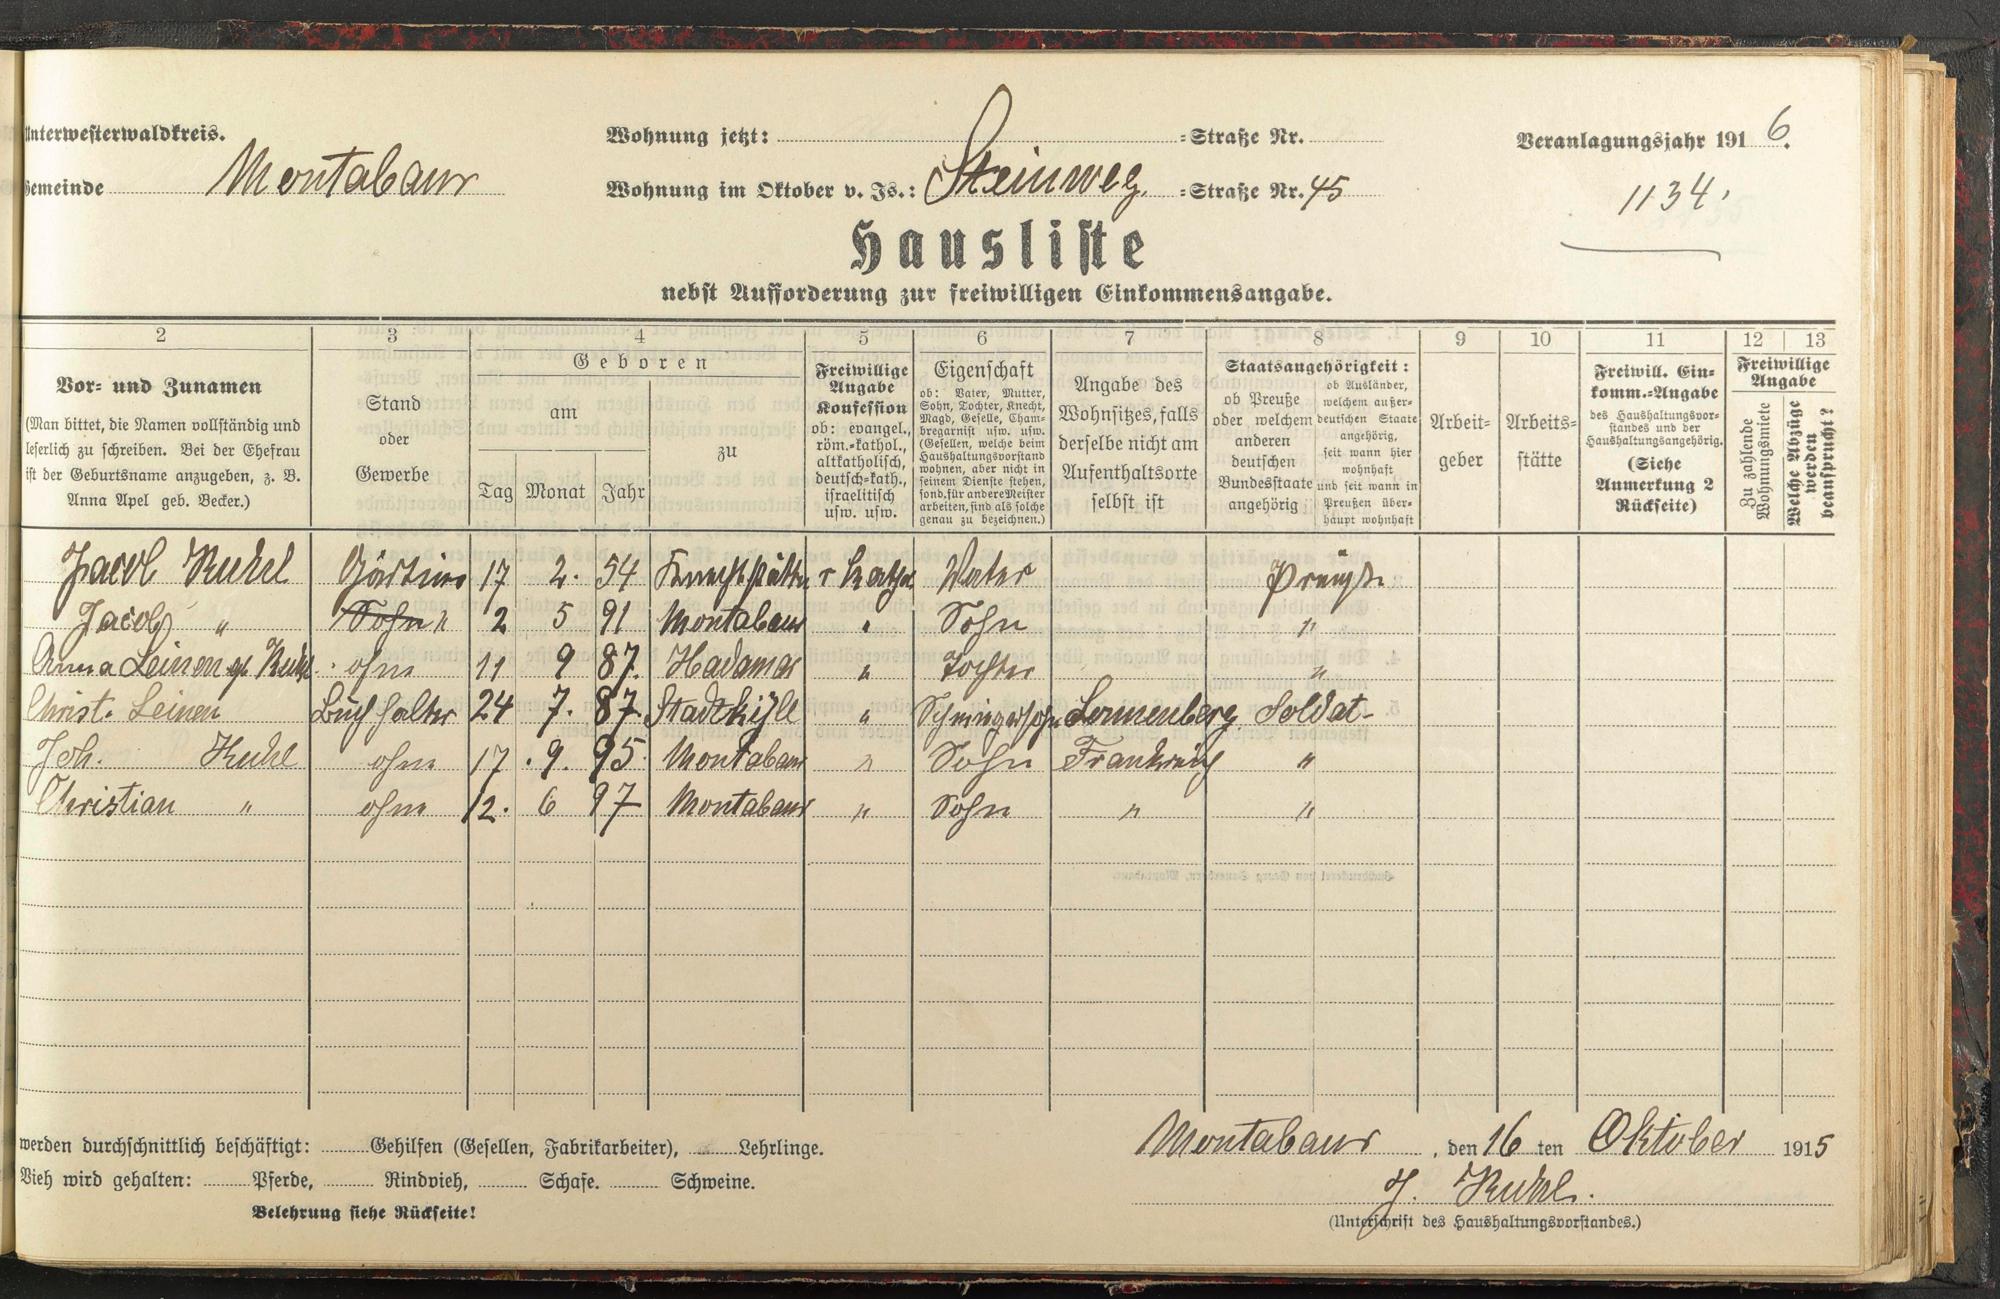 Unterwesterwaldkreis.
Gemeinde Montabaur
Wohnung jetzt: =Straße Nr.
Wohnung im Oktober v. Js.: Steinweg =Straße Nr. 45
Veranlagungsjahr 1916.
1134.
Hausliste
nebst Aufforderung zur freiwilligen Einkommensangabe.
2 3 4 5 6 7 8 9 10 11 12 13
Vor- und Zunamen
(Man bittet, die Namen vollständig und
leserlich zu schreiben. Bei der Ehefrau
ist der Geburtsname anzugeben, z. B.
Anna Apel geb. Becker.)
Stand
oder
Gewerbe
Geboren
am
Tag Monat Jahr
zu
Freiwillige
Angabe
Konfession
ob: evangel.,
röm.=kathol.,
altkatholisch,
deutsch=kath.,
israelitisch
usw. usw.
Eigenschaft
ob: Vater, Mutter,
Sohn, Tochter, Knecht,
Magd, Geselle, Cham-
bregarnist usw. usw.
(Gesellen, welche beim
Haushaltungsvorstand
wohnen, aber nicht in
seinem Dienste stehen,
sond. für andere Meister
arbeiten, sind als solche
genau zu bezeichnen.)
Angabe des
Wohnsitzes, falls
derselbe nicht am
Aufenthaltsorte
selbst ist
Staatsangehörigkeit:
ob Preuße
oder welchem
anderen
deutschen
Bundesstaate
angehörig
ob Ausländer,
welchem außer-
deutschen Staate
angehörig,
seit wann hier
wohnhaft
und seit wann in
Preußen über-
haupt wohnhaft
Arbeit=
geber
Arbeits=
stätte
Freiwill. Ein=
komm.=Angabe
des Haushaltungsvor=
standes und der
Haushaltungsangehörig.
(Siehe
Anmerkung 2
Rückseite)
Freiwillige
Angabe
Zu zahlende
Wohnungsmiete
Welche Abzüge
werden
beansprucht?
Jacob Kuhl Gärtner 17 2. 54 r Kathol Vater Preuße
Jacob " Sohn " 2 5 91 Montabaur " Sohn "
Anna Leinen gb Kuhl ohne 11 9 87. Hadamar " Tochter "
Christ. Leinen Buchhalter 24 7. 87. Stadtkyll " Schwiegersohn Sonnenberg Soldat
Joh. Kuhl ohne 17 9. 95. Montabaur " Sohn Frankreich "
Christian " ohne 12. 6 97 Montabaur " Sohn " "
werden durchschnittlich beschäftigt: Gehilfen (Gesellen, Fabrikarbeiter), Lehrlinge.
Vieh wird gehalten: Pferde, Rindvieh, Schafe. Schweine.
Belehrung siehe Rückseite!
Montabaur, den 16 ten Oktober 1915
J. Kuhl.
(Unterschrift des Haushaltungsvorstandes.)